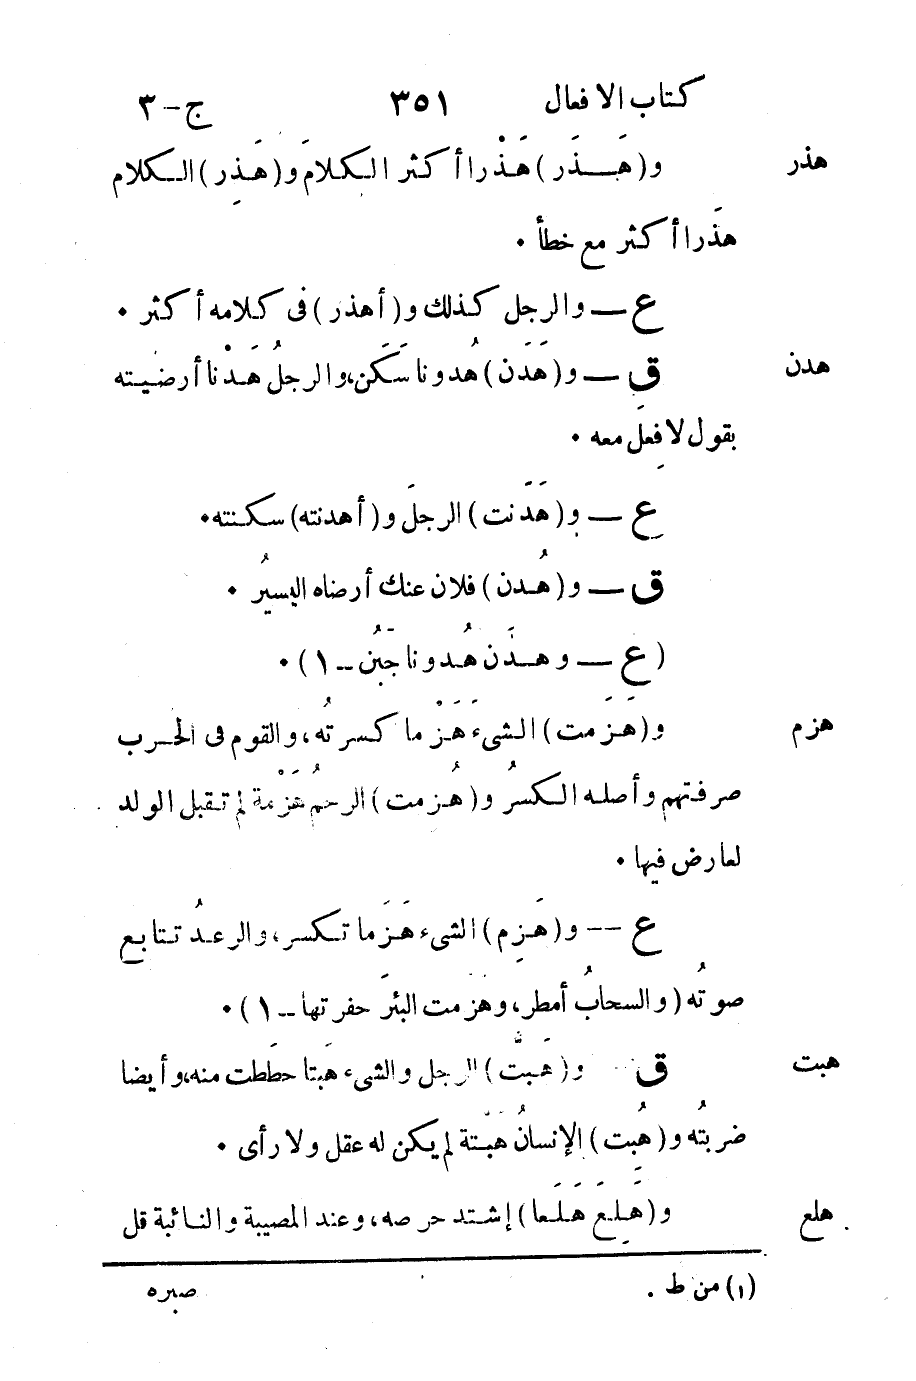 كتاب الافعال ٣٥١ ج-٣
هذر و(هَـذَر) هَذْرا أكثر الكلامَ و(هَذِر) الكلام
هذَرا أكثر مع خطأ.
ع — والرجل كذلك و(أهذر) فى كلامه أكثر.
هدن ق — و(هَدَن) هُدونا سَكَن، والرجلُ هَدْنا أرضيته
بقول لا فِعلَ معه.
ع — و(هَدَّنت) الرجلَ و(أهدنته) سكنته.
ق — و(هُدن) فلان عنك أرضاه اليسيرُ.
(ع — وهدَن هُدونا جَبُن — ١).
هزم و(هَزَمت) الشىءَ هَزْما كسرتُه، والقوم فى الحرب
صرفتهم وأصله الكسرُ و(هُزمت) الرحمُ هَزْمة لم تقبل الولد
لعارض فيها.
ع — و(هَزِم) الشىء هَزَما تكسر، والرعدُ تتابع
صوتُه (والسحابُ أمطر، وهزمت البئرَ حفرتها — ١).
هبت ق و(هَبتّ) الرجل والشىء هَبتا حطَطت منه، وأيضا
ضربتُه و(هُبت) الإنسانُ هَبْتة لم يكن له عقل ولا رأى.
هلع و(هَلِعَ هَلَعا) إشتد حرصه، وعند المصيبة والنائبة قل
(١) من ط.
صبره